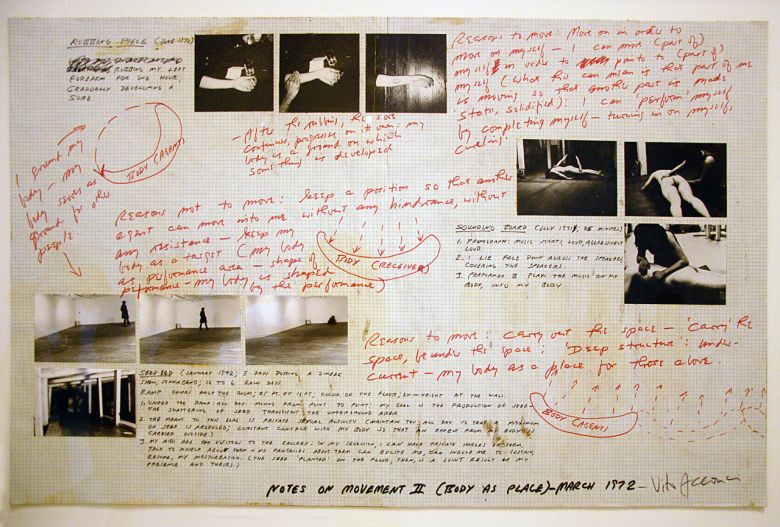 RUBBING PIECE (JUNE 1970)
RUBBING MY LEFT
FOREARM FOR ONE HOUR,
GRADUALLY DEVELOPING A
SORE.
Reasons to move: Move on in order to
move on myself – I can move (part of)
myself in order to points to (part of)
myself (what this can mean is that part of me
is moving so that another part is made
static, solidified): I can 'perform' myself
by completing myself – turning in on myself,
circling.
– After the rubbing, the sore
continues, progresses on its own: my
body is a ground on which
something is developed
BODY (AGENT)
I ground my
body – my
body serves as
ground for other
people.
Reasons not to move: keep a position so that another
agent can move into me without any hindrance, without
any resistance – keep my
body as a target (my body
as performance area – shape of
performance – my body is shaped
by the performance)
BODY (RECEIVER)
SOUNDING BOARD (JULY 1971, 25 MINUTES)
1. PHONOGRAPH: MUSIC STARTS, LOUD, AGGRESSIVELY
LOUD.
2. I LIE FACE DOWN ACROSS THE SPEAKERS
COVERING THE SPEAKERS.
3. PERFORMER B PLAYS THE MUSIC ON MY
BODY, INTO MY BODY
Reasons to move: carry out the space – 'carry' the
space, be under the space: 'Deep structure': under-
current – my body as a place for those above.
BODY (AGENT)
SEED BED (JANUARY 1972; 5 DAYS DURING A 2 WEEK
SHOW, SONNABEND; 10 TO 6 EACH DAY)
RAMP COVERS HALF THE ROOM; 25 FT. BY 15 FT; COLOR OF THE FLOOR; 2½' IN HEIGHT AT THE WALL
1. UNDER THE RAMP ALL DAY MOVING FROM POINT TO POINT: MY GOAL IS THE PRODUCTION OF SEED –
THE SCATTERING OF SEED THROUGHOUT THE UNDERGROUND AREA.
2. THE MEANS TO THIS GOAL IS PRIVATE SEXUAL ACTIVITY (MAINTAIN THIS ALL DAY SO THAT A MAXIMUM
OF SEED IS PRODUCED; CONSTANT CONTACT WITH MY BODY
CARRIED OUTSIDE)
3. MY AIDS ARE THE VISITORS TO THE GALLERY: IN MY SECLUSION, I CAN HAVE PRIVATE IMAGES OF THEM,
TALK TO MYSELF ABOUT THEM – MY FANTASIES ABOUT THEM CAN EXCITE ME, CAN INDUCE ME TO SUSTAIN,
RESUME, MY MASTURBATION. (THE SEED 'PLANTED' ON THE FLOOR, THEN, IS A JOINT RESULT OF MY
PRESENCE AND THEIRS.)
NOTES ON MOVEMENT II (BODY AS PLACE) – MARCH 1972 – Vito Acconci